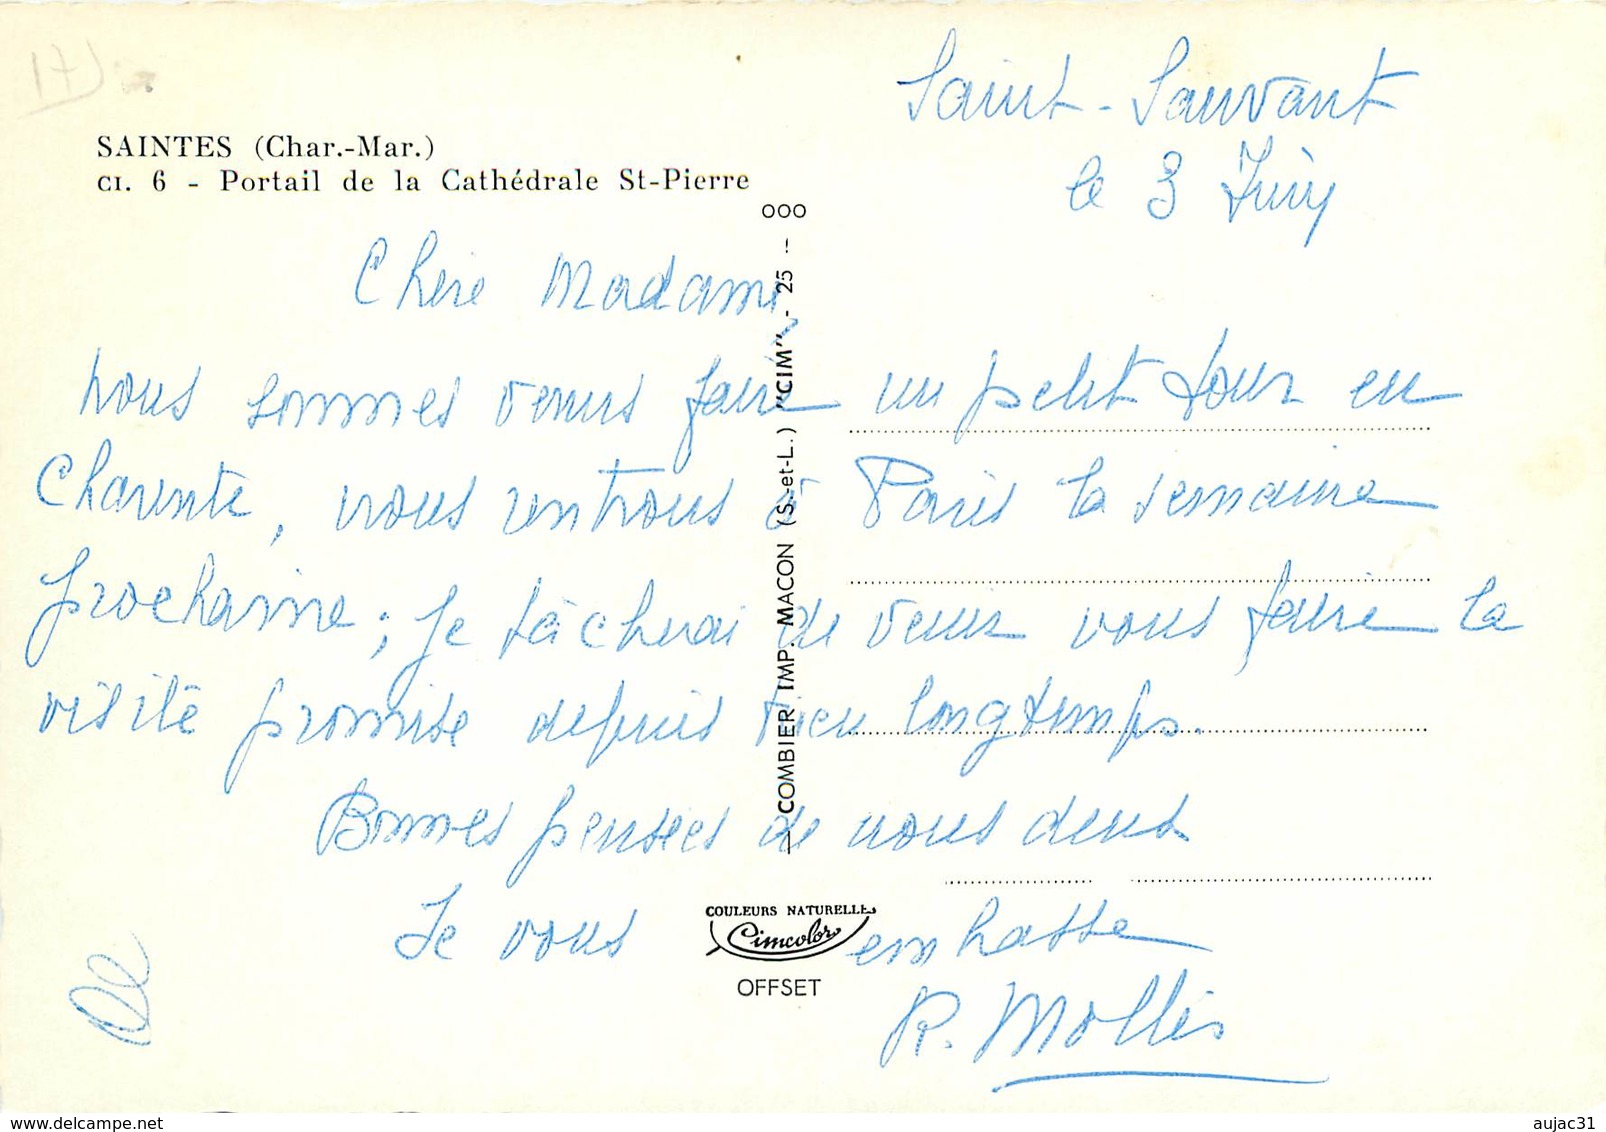 17
Saint-Sauvant
le 3 Juin
SAINTES (Char.-Mar.)
CI. 6 - Portail de la Cathédrale St-Pierre
Chère Madame,
nous sommes venus faire un petit tour en
Charente, nous rentrons à Paris la semaine
prochaine; je tâcherai de venir vous faire la
visite promise depuis bien longtemps.
Bonnes pensées de nous deux
Je vous embrasse
R. Mollier
COMBIER IMP. MACON (S.-et-L.) "CIM" - 25 -
COULEURS NATURELLES
Cimcolor
OFFSET
delcampe.net
aujac31